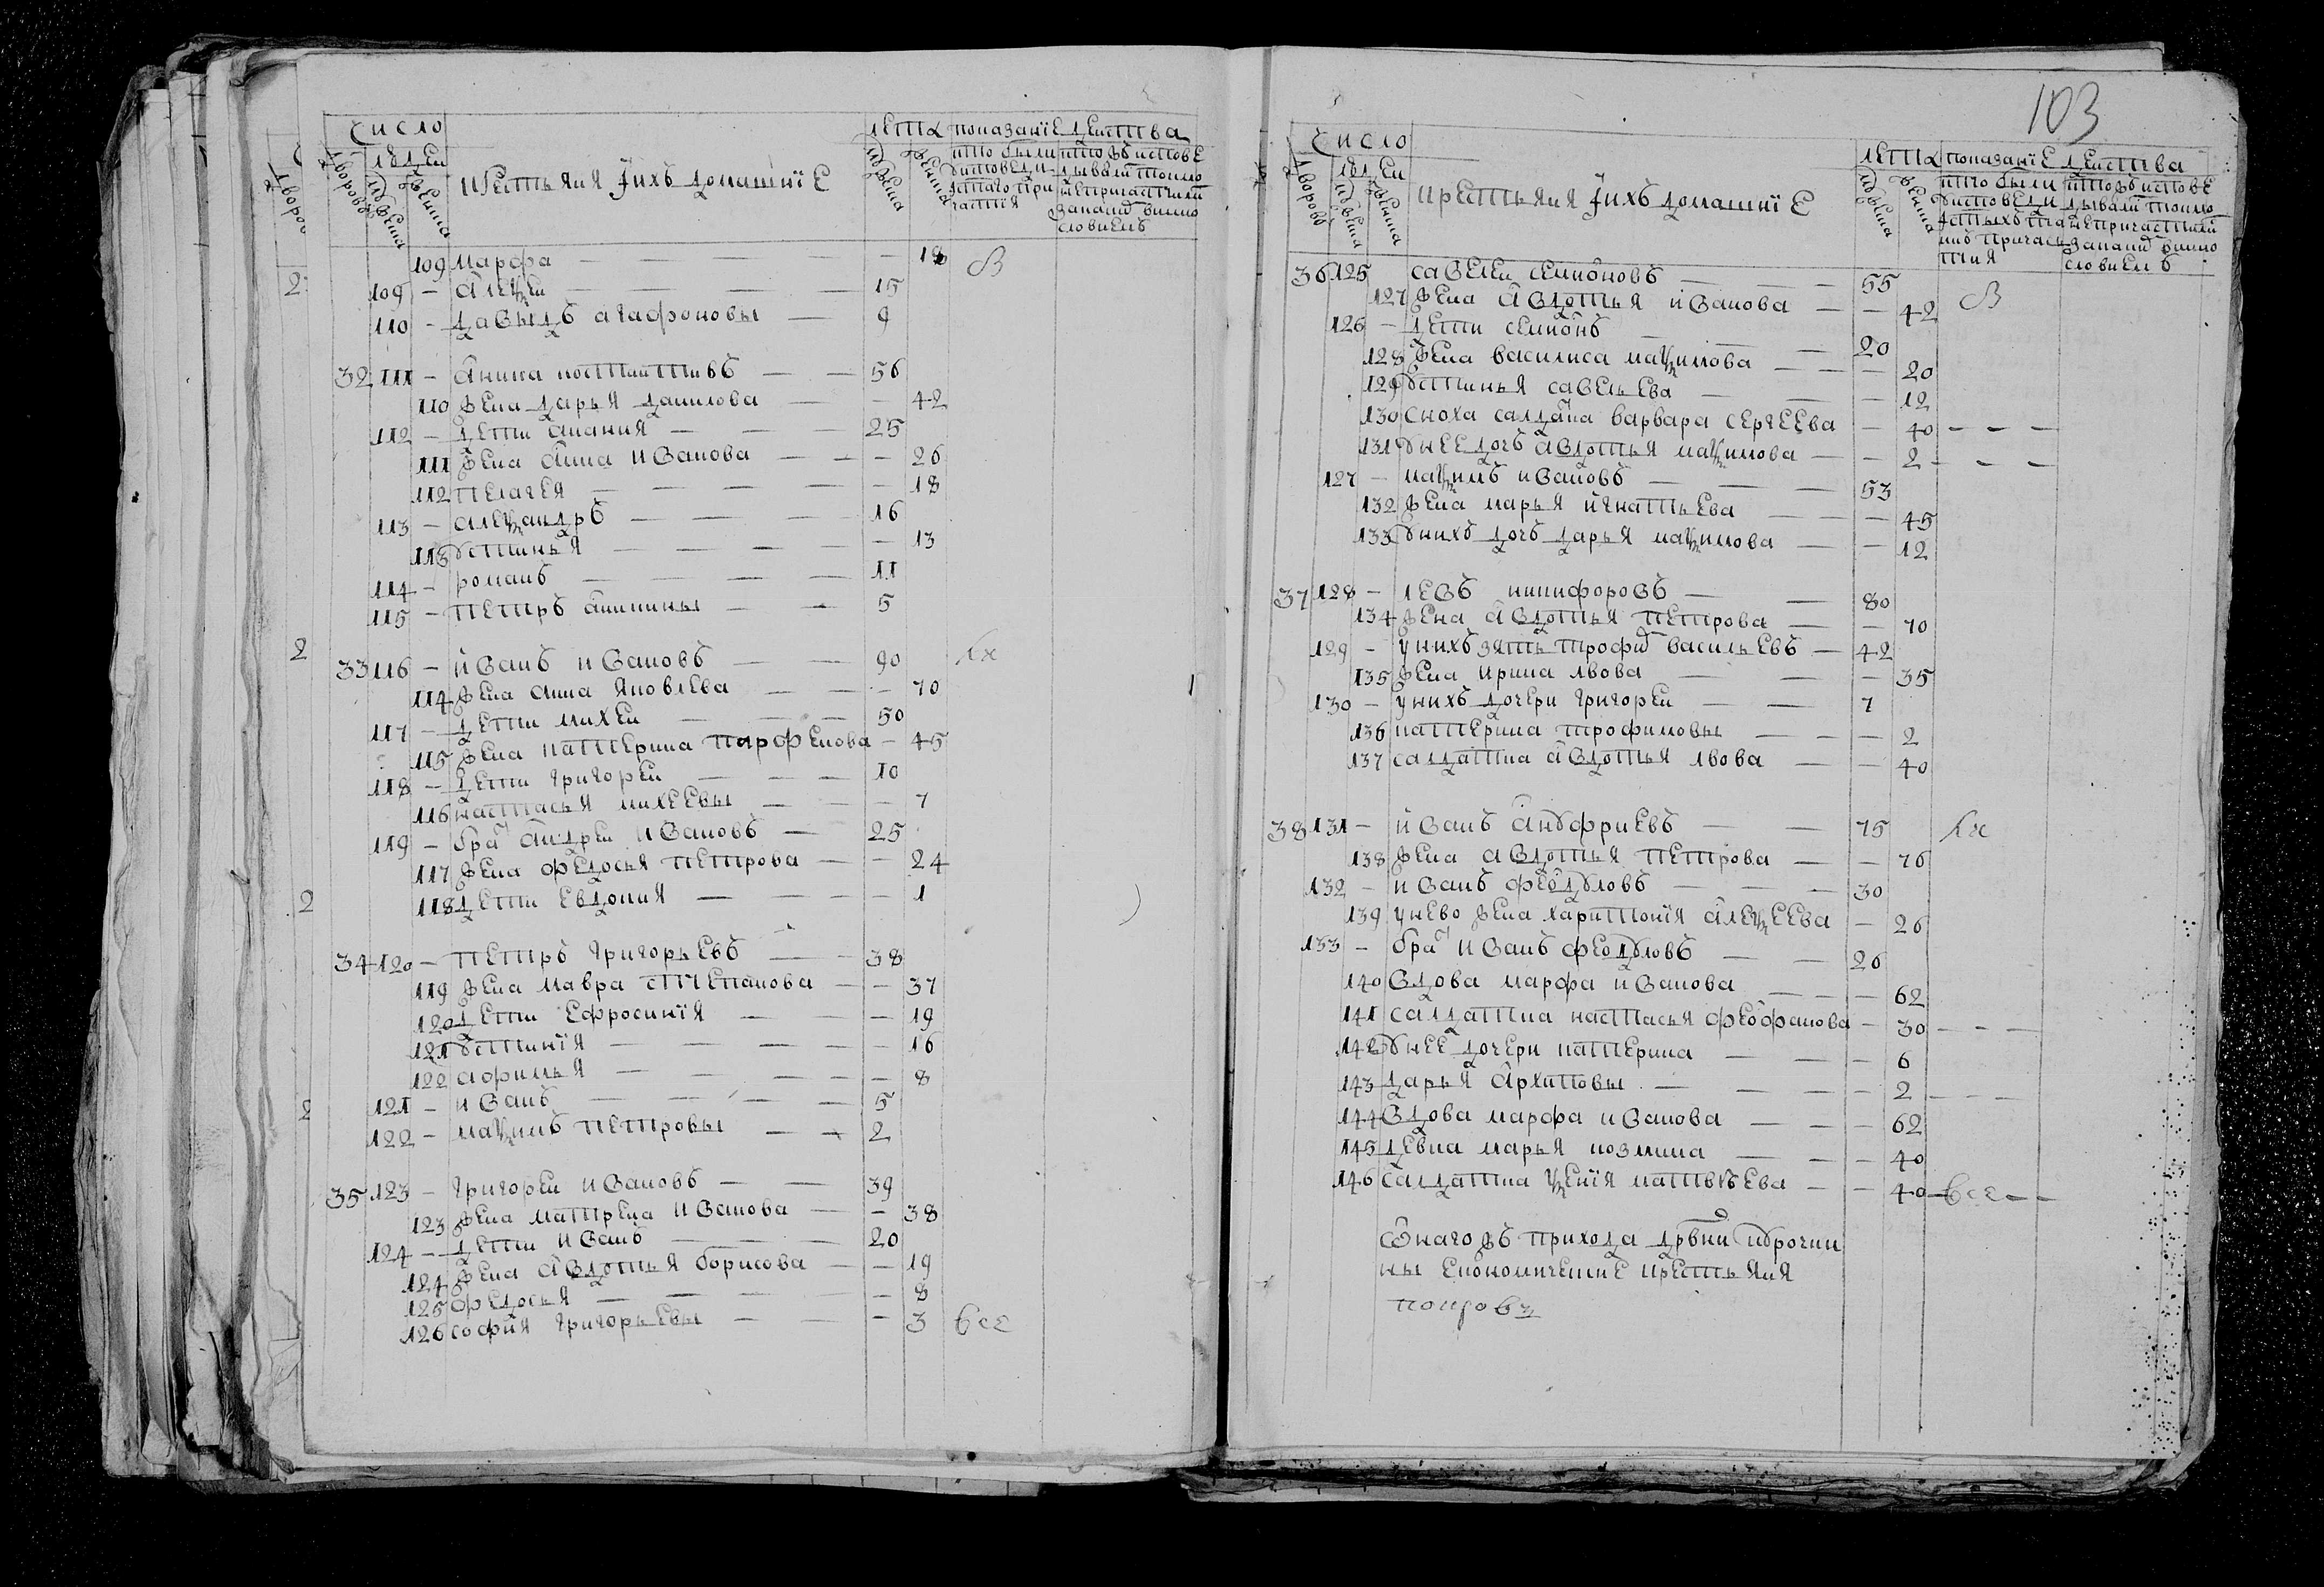 число
людей
дворовъ
мужеска
женска
крестьяня и ихъ домашние
лета
мужеска
женска
показание действа
кто были
у исповеди
и с҃таго при
частия
кто уъ испове
дывали толко
не причастили
за какимъ винно
словиемъ
109 Марфа — — — 18
109 — Алеѯеи — — — 15
110 — Давыдъ агафоновы — 9
32 111 — Аника костантиивъ — — 56
110 жена дарья данилова — — 42
112 — дети анания — — 25
111 жена анна иванова — — 26
112 пелагея — — — — 18
113 — алеѯандръ — — — 16
113 устинья — — — — 13
114 — романъ — — — 11
115 — петръ аникины — — 5
33 116 — иванъ ивановъ — — 90
114 жена анна яковлева — — 70
117 — дети михеи — — — 50
115 жена катерина парфенова — 45
118 — дети григореи — — — 10
116 настасья михеевы — — 7
119 — братъ андреи ивановъ — 25
117 жена федосья петрова — — 24
118 дети евдокия — — — 1
34 120 — петръ григорьевъ — — 38
119 жена мавра степанова — — 37
120 дети ефросиния — — — 19
121 устиния — — — — 16
122 афимья — — — — 8
121 — иванъ — — — — 5
122 — маѯимъ петровы — — 2
35 123 — григореи ивановъ — — 39
123 жена матрена иванова — — 38
124 — дети иванъ — — — 20
124 жена авдотья борисова — — 19
125 федосья — — — — 8
126 софия григорьевы — — — 3 все
103
число
людеи
дворовъ
мужеска
женска
крестьяня и ихъ домашние
лета
мужеска
женска
показание действа
кто были
у исповеди и
с҃тыхъ таи
нъ причас
тия
кто уъ испове
дывали толко
не причастили
за какимъ винно
словиемъ
36 125 савелеи семионовъ — — 55
127 жена авдотья иванова — — 42
126 — дети семионъ — — — 20
128 жена василиса маѯимова — — — 20
129 устинья савельева — — — 12
130 сноха салдатка варвара сергеева — 40 — — —
131 у нее дочь авдотья маѯимова — — 2 — — —
127 — маѯимъ ивановъ — — — 53
132 жена марья игнатьева — — 45
133 у нихъ дочь дарья маѯимова — — 12
37 128 — левъ никифоровъ — — 80
134 жена авдотья петрова — — 70
129 — у нихъ зять трофимъ васильевъ — 42
135 жена ирина лвова — — — 35
130 — у нихъ дочери григореи — — 7
136 катерина трофимовы — — — 2
137 салдатка авдотья лвова — — 40
38 131 — иванъ анофриевъ — — 75
138 жена авдотья петрова — — 76
132 — иванъ феодуловъ — — — 30
139 у нево жена харитония алеѯеева — 26
133 — братъ иванъ феодуловъ — — 26
140 вдова марфа иванова — — — 62
141 салдатка настасья феофанова — 30 — — —
142 у нее дочери катерина — — — 6
143 дарья архиповы — — — — 2 — — —
144 вдова марфа иванова — — — 62
145 девка марья козмина — — — 40
146 салдатка ѯения матвѣева — — 40 — все — —
онагожъ прихода дрвни оброчни
ны економические крестьяня
покровъ